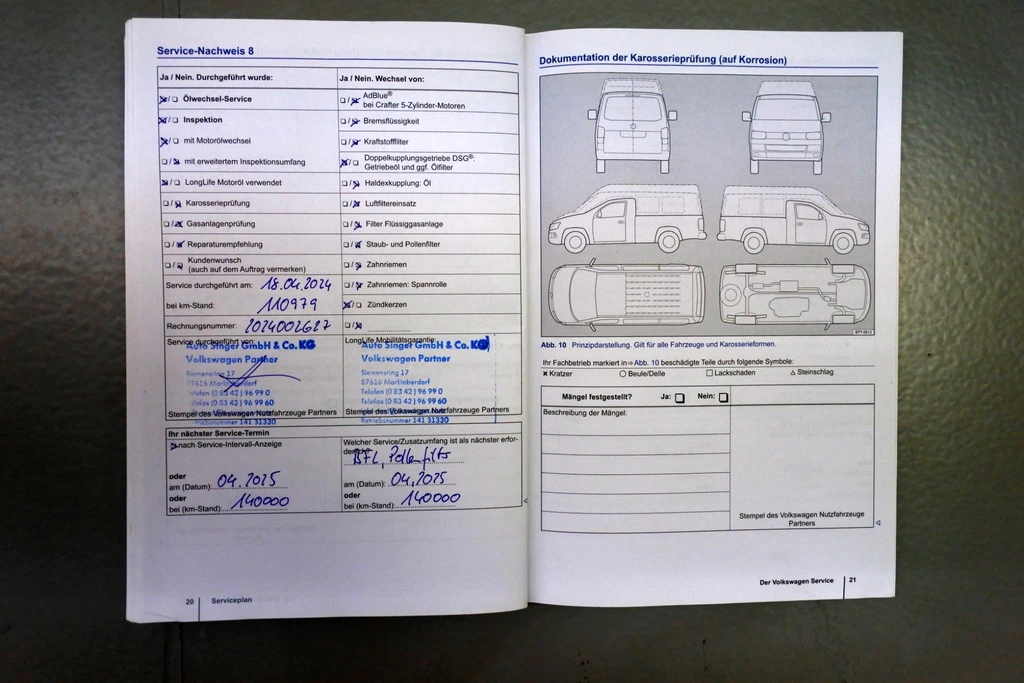 Service-Nachweis 8
Ja / Nein. Durchgeführt wurde:
Ölwechsel-Service
Inspektion
mit Motorölwechsel
mit erweitertem Inspektionsumfang
LongLife Motoröl verwendet
Karosserieprüfung
Gasanlagenprüfung
Reparaturempfehlung
Kundenwunsch
(auch auf dem Auftrag vermerken)
Service durchgeführt am: 18.04.2024
bei km-Stand: 110979
Rechnungsnummer: 2024002627
Service durchgeführt von:
Auto Singer GmbH & Co. KG
Volkswagen Partner
Siemensring 17
87616 Marktoberdorf
Telefon (0 83 42) 96 99 0
Telefax (0 83 42) 96 99 60
Betriebsnummer 141 31330
Stempel des Volkswagen Nutzfahrzeuge Partners
Ja / Nein. Wechsel von:
AdBlue®
bei Crafter 5-Zylinder-Motoren
Bremsflüssigkeit
Kraftstofffilter
Doppelkupplungsgetriebe DSG®:
Getriebeöl und ggf. Ölfilter
Haldexkupplung: Öl
Luftfiltereinsatz
Filter Flüssiggasanlage
Staub- und Pollenfilter
Zahnriemen
Zahnriemen: Spannrolle
Zündkerzen
LongLife Mobilitätsgarantie:
Auto Singer GmbH & Co. KG
Volkswagen Partner
Siemensring 17
87616 Marktoberdorf
Telefon (0 83 42) 96 99 0
Telefax (0 83 42) 96 99 60
Betriebsnummer 141 31330
Stempel des Volkswagen Nutzfahrzeuge Partners
Ihr nächster Service-Termin
nach Service-Intervall-Anzeige
oder
am (Datum): 04.2025
oder
bei (km-Stand): 140000
Welcher Service/Zusatzumfang ist als nächster erfor-
derlich?
BFL, Pollenfilter
am (Datum): 04.2025
oder
bei (km-Stand): 140000
20 Serviceplan
Dokumentation der Karosserieprüfung (auf Korrosion)
Abb. 10 Prinzipdarstellung. Gilt für alle Fahrzeuge und Karosserieformen.
Ihr Fachbetrieb markiert in ⇒ Abb. 10 beschädigte Teile durch folgende Symbole:
✖ Kratzer ○ Beule/Delle □ Lackschaden △ Steinschlag
Mängel festgestellt? Ja: Nein:
Beschreibung der Mängel:
Stempel des Volkswagen Nutzfahrzeuge
Partners
Der Volkswagen Service 21